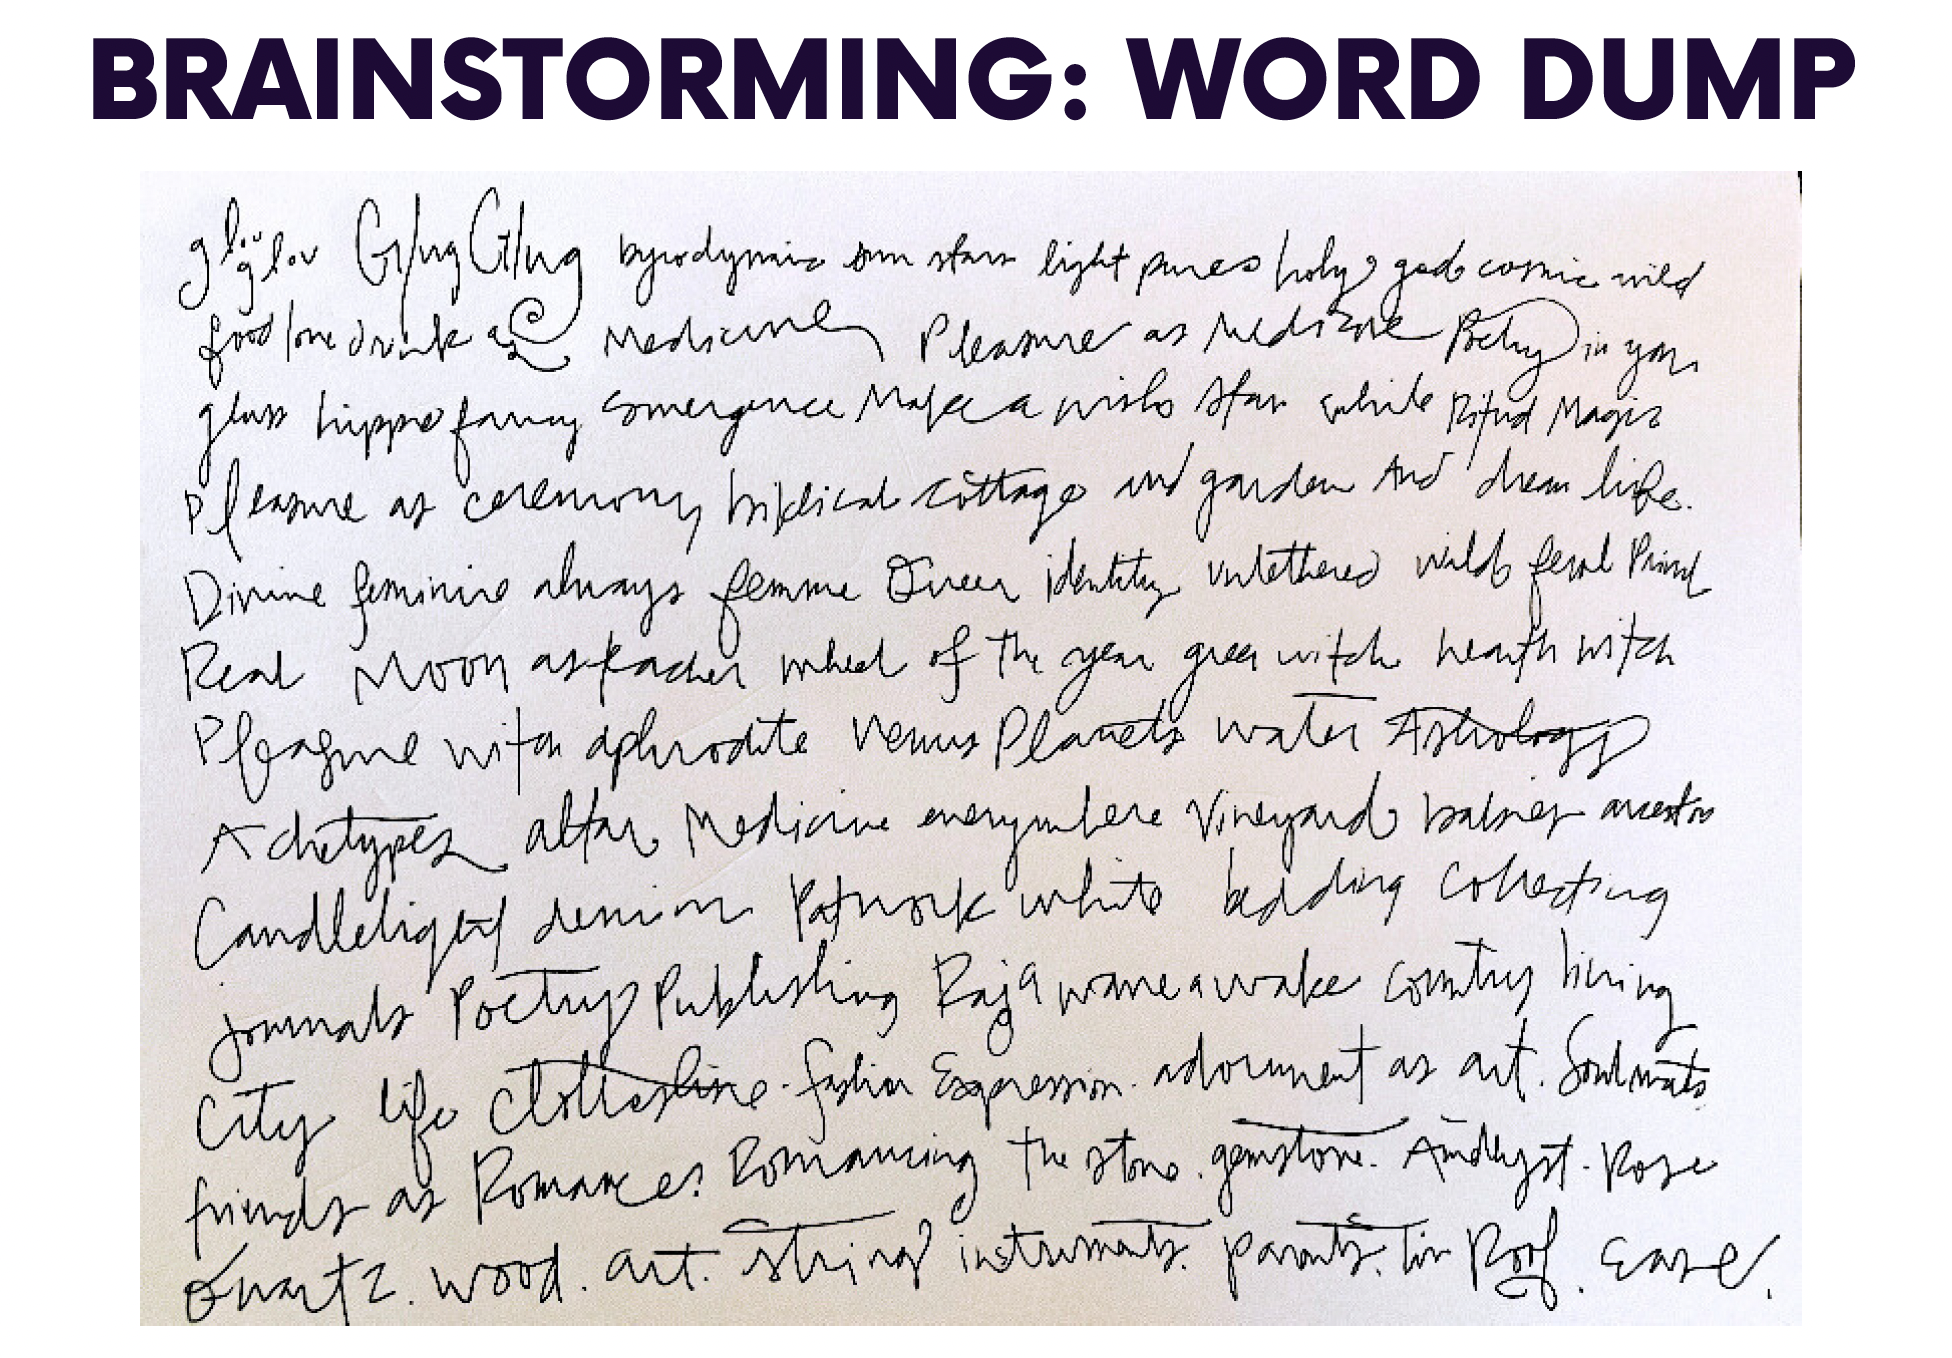 BRAINSTORMING: WORD DUMP
glou glou GlugGlug byodynamic sun stars light pures holy god cosmic wild
food love drink as Medicine Pleasure as Medicine Poetry in your
glass hippie fancy emergence Make a wish star while Ritual Magic
Pleasure as ceremony biblical cottage and garden And dream life.
Divine feminine always femme Queer identity untethered wild feral
Real Moon as teacher wheel of the year green witch hearth witch
Pleasure witch aphrodite Venus Planets water Astrology
Achetypes altar Medicine everywhere Vineyard babies ancestors
Candlelight denim Patwork white bedding collecting
journals Poetry Publishing Raja wane awake country living
City life Clothesline. fashion Expression. adornment as art. Soulmates
friends as Romance. Romancing the stone. gemstone. Amethyst. Rose
Quartz. wood. art. string instruments. parents. tin Roof. ease.